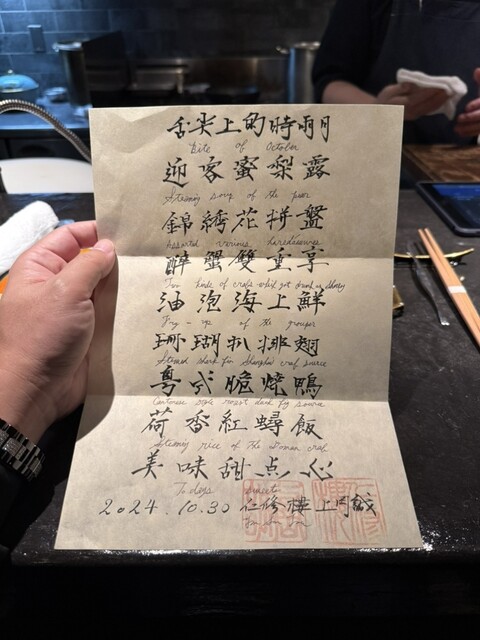 舌尖上的時雨
Bite of October
迎客蜜梨露
Steaming soup of the pear
錦綉花拼盤
Assorted various
醉蟹雙重享
Two kinds of crabs which got drunk in Sherry
油泡海上鮮
Fry-up of the grouper
珊瑚扒排翅
Steamed shark fin Shanghai crab source
粤式脆燒鴨
Cantonese style roast duck fig source
荷香紅蟳飯
Steamy rice of the woman crab
美味甜点心
Todays sweets
2024.10.30 仁修樓 上岡誠